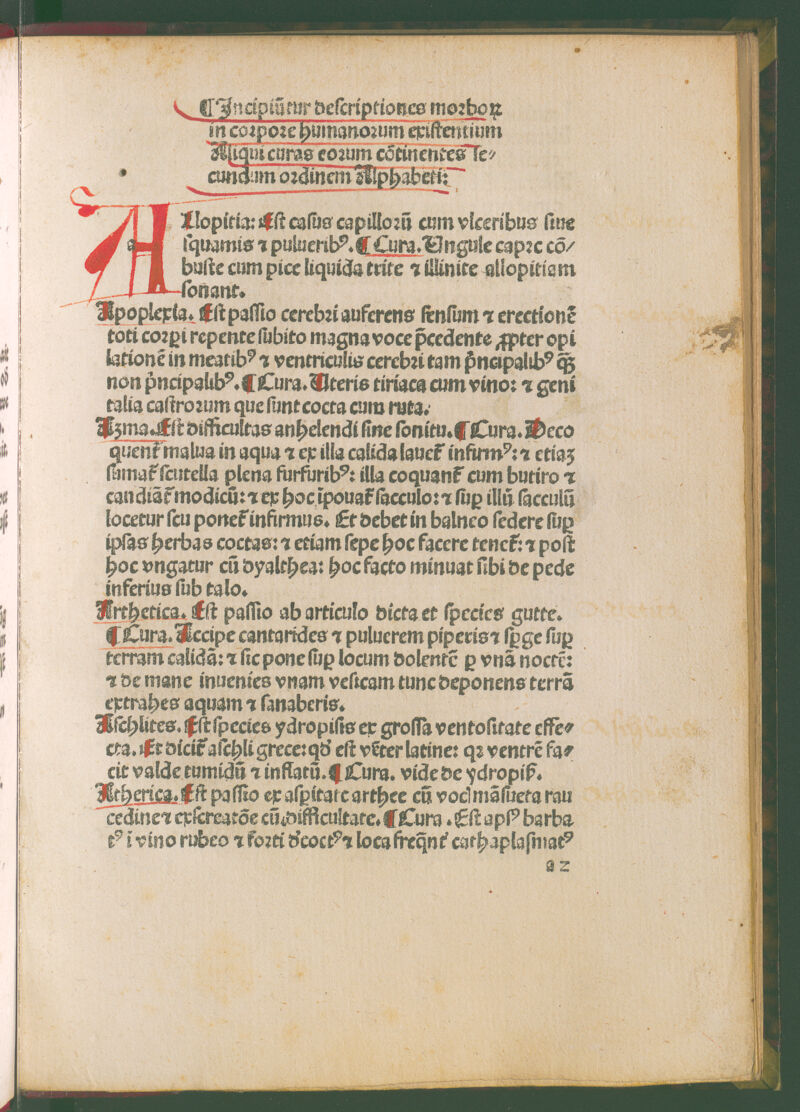 ¶ Incipiūtur deſcriptiones morboꝝ
in corpore humanorum exiſtentium
Aliqui curas eorum cōtinentes Se⸗
cundum ordinem Alphabeti:
Allopitia: Eſt caſus capillorū cum vlceribus ſiue
ſquamis ⁊ puluerib⁹. ¶ Cura. Vngule capre cō/
buſte cum pice liquida trite ⁊ illinite allopitiam
ſonant.
Apoplexia. Eſt paſſio cerebri auferens ſenſum ⁊ erectionē
toti corpi repente ſubito magna voce p̄cedente ꝓpter opi
lationē in meatib⁹ ⁊ ventriculis cerebri tam pͥncipalib⁹ qꝫ
non pͥncipalib⁹. ¶ Cura. Vteris tiriaca cum vino: ⁊ geni
talia caſtrorum que ſunt cocta cum ruta.
Azma. Eſt difficultas anhelendi ſine ſonitu. ¶ Cura. Deco
quent᷑ malua in aqua ⁊ ex illa calida lauet᷑ infirm⁹: ⁊ etiaꝫ
ſumat᷑ ſcutella plena furfurib⁹: illa coquant᷑ cum butiro ⁊
candiāt᷑ modicū: ⁊ ex hoc īpouat᷑ ſacculo: ⁊ ſuꝑ illū ſacculū
locetur ſeu ponet᷑ infirmus. Et debet in balneo ſedere ſuꝑ
ipſas herbas coctas: ⁊ etiam ſepe hoc facere tenet᷑: ⁊ poſt
hoc vngatur cū dyalthea: hoc facto minuat ſibi de pede
inferius ſub talo.
Arthetica. Eſt paſſio ab articulo dicta et ſpecies gutte.
¶ Cura. Accipe cantarides ⁊ puluerem piperis ⁊ ſꝑge ſuꝑ
terram calidā: ⁊ ſic pone ſuꝑ locum dolentē ꝑ vnā noctē:
⁊ de mane inuenies vnam veſicam tunc deponens terrā
extrahes aquam ⁊ ſanaberis.
Aſchlites. Eſt ſpecies ydropiſis ex groſſa ventoſitate effe⸗
cta. Et dicit᷑ aſchli grece: qd̓ eſt vēter latine: qꝛ ventrē fa⸗
cit valde tumidū ⁊ inflatū. ¶ Cura. vide de ydropiſ.
Atherica. Eſt paſſio ex aſpitate arthee cū vocī māſueta rau
cedine ⁊ exſcreatōe cū difficultate. ¶ Cura. Eſt apſ⁹ barba
t⁹ ī vino rubeo ⁊ forti d̓coct⁹ ⁊ loca freq̄nt᷑ cathaplaſmat⁹
a2